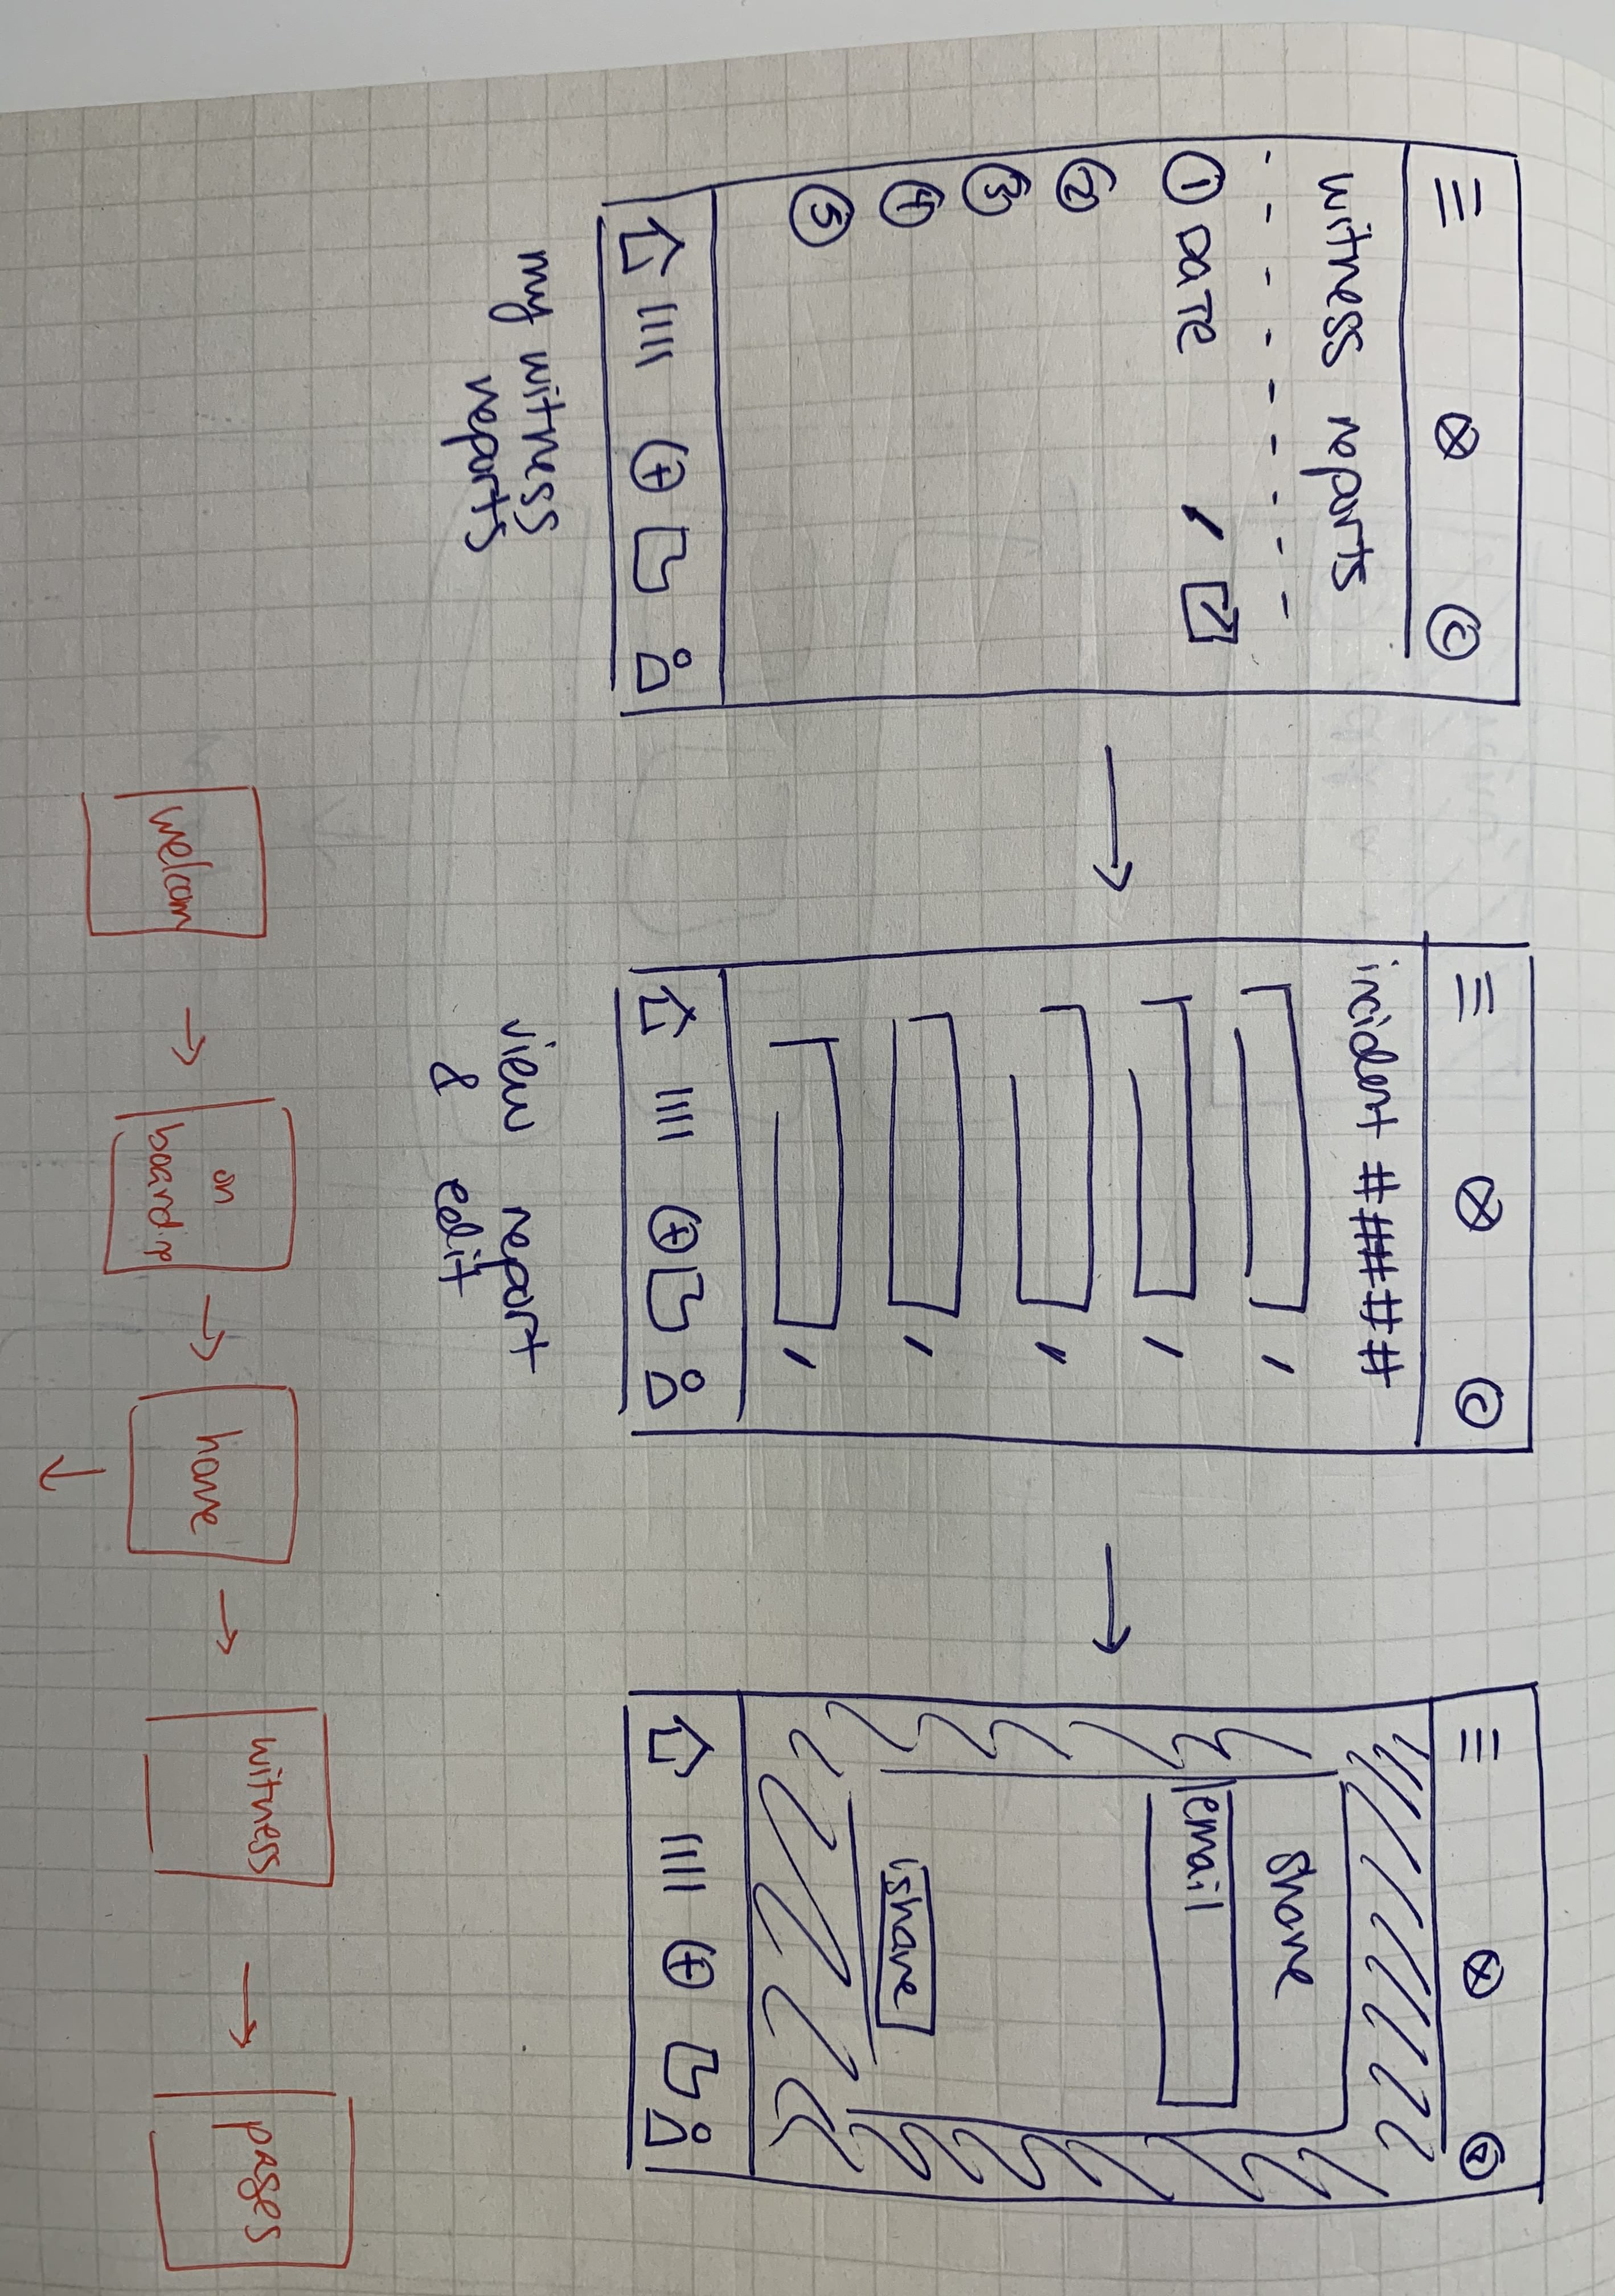 witness reports
① DATE
②
③
④
⑤
my witness
reports
incident #####
view report
& edit
share
email
share
welcom
on
boarding
home
witness
pages